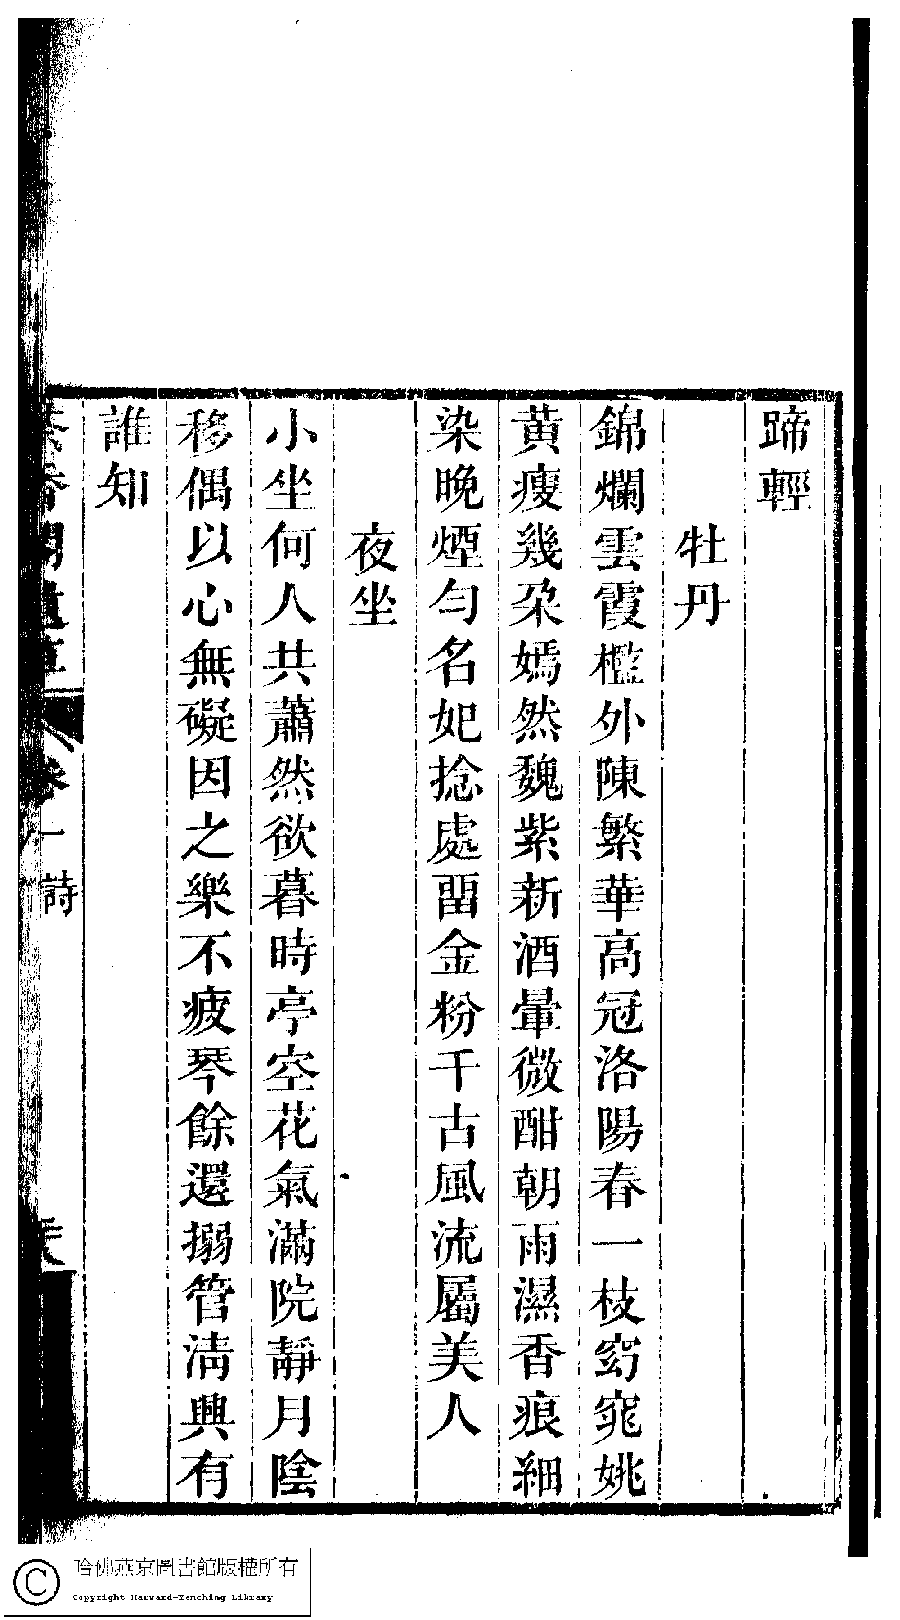 蹄輕
牡丹
錦爛雲霞檻外陳繁華高冠洛陽春一枝窈窕姚
黃瘦幾朶嫣然魏紫新酒暈微酣朝雨濕香痕細
染晚煙勻名妃捻處畱金粉千古風流屬美人
夜坐
小坐何人共蕭然欲暮時亭空花氣滿院靜月陰
移偶以心無礙因之樂不疲琴餘還搦管淸興有
誰知
卷一 詩
哈佛燕京圖書館版權所有
Copyright Harvard-Yenching Library